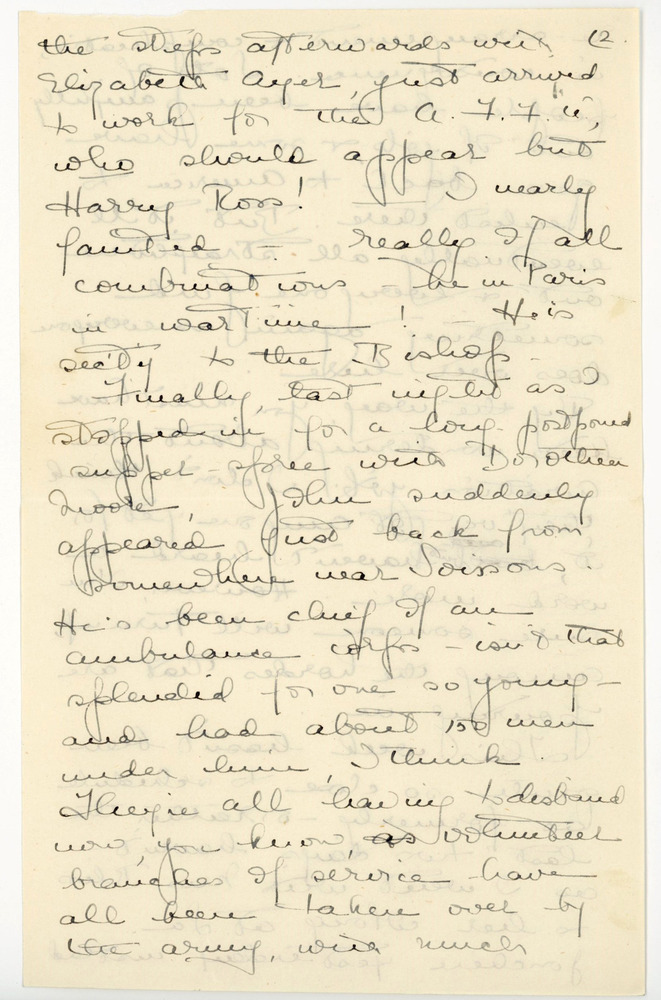 the steps afterwards with 12.
Elizabeth Ayer, just arrived
to work for the A. F. F. W.,
who should appear but
Harry Ross! — I nearly
fainted — really of all
combinations — he in Paris
in war time! — He is
sec'ty to the Bishop —
— Finally, last night as I
stopped in for a long-postponed
supper-spree with Dorothea
Moore, John suddenly
appeared just back from
somewhere near Soissons.
He's been chief of an
ambulance corps — isn't that
splendid for one so young —
and had about 150 men
under him, I think.
They're all having to disband
now, you know, as volunteer
branches of service have
all been taken over by
the army, with much